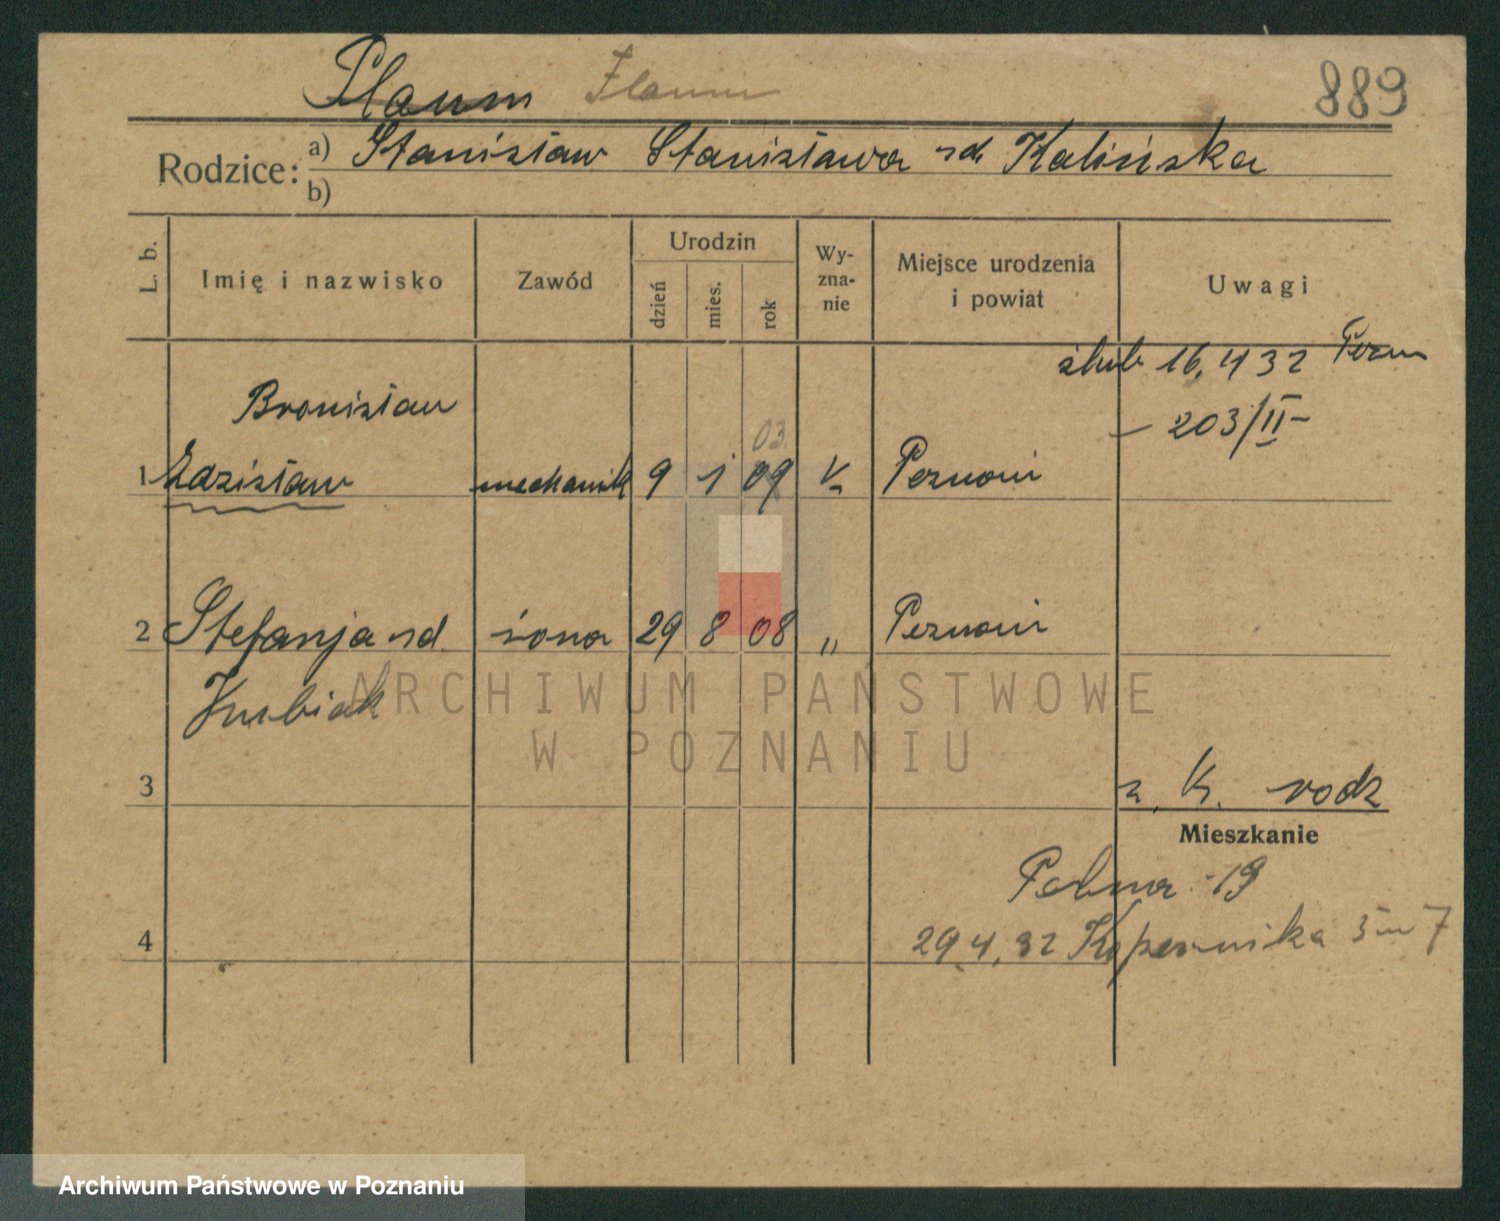 Plaum Flaum 889
Rodzice: a) Stanisław Stanisława zd. Kalińska
b)
L. b. Imię i nazwisko Zawód Urodzin dzień mies. rok Wy-zna-nie Miejsce urodzenia i powiat Uwagi
ślub 16.4 32 Pozn
Bronisław 203/II-
03
1 Zdzisław mechanik 9 1 09 Poznań
2 Stefanja zd. żona 29 8 08 " Poznań
ARCHIWUM PAŃSTWOWE
W POZNANIU
3 z. K. rodz
Mieszkanie
Polna 19
4 29.4.32 Kopernika 5 m 7
Archiwum Państwowe w Poznaniu